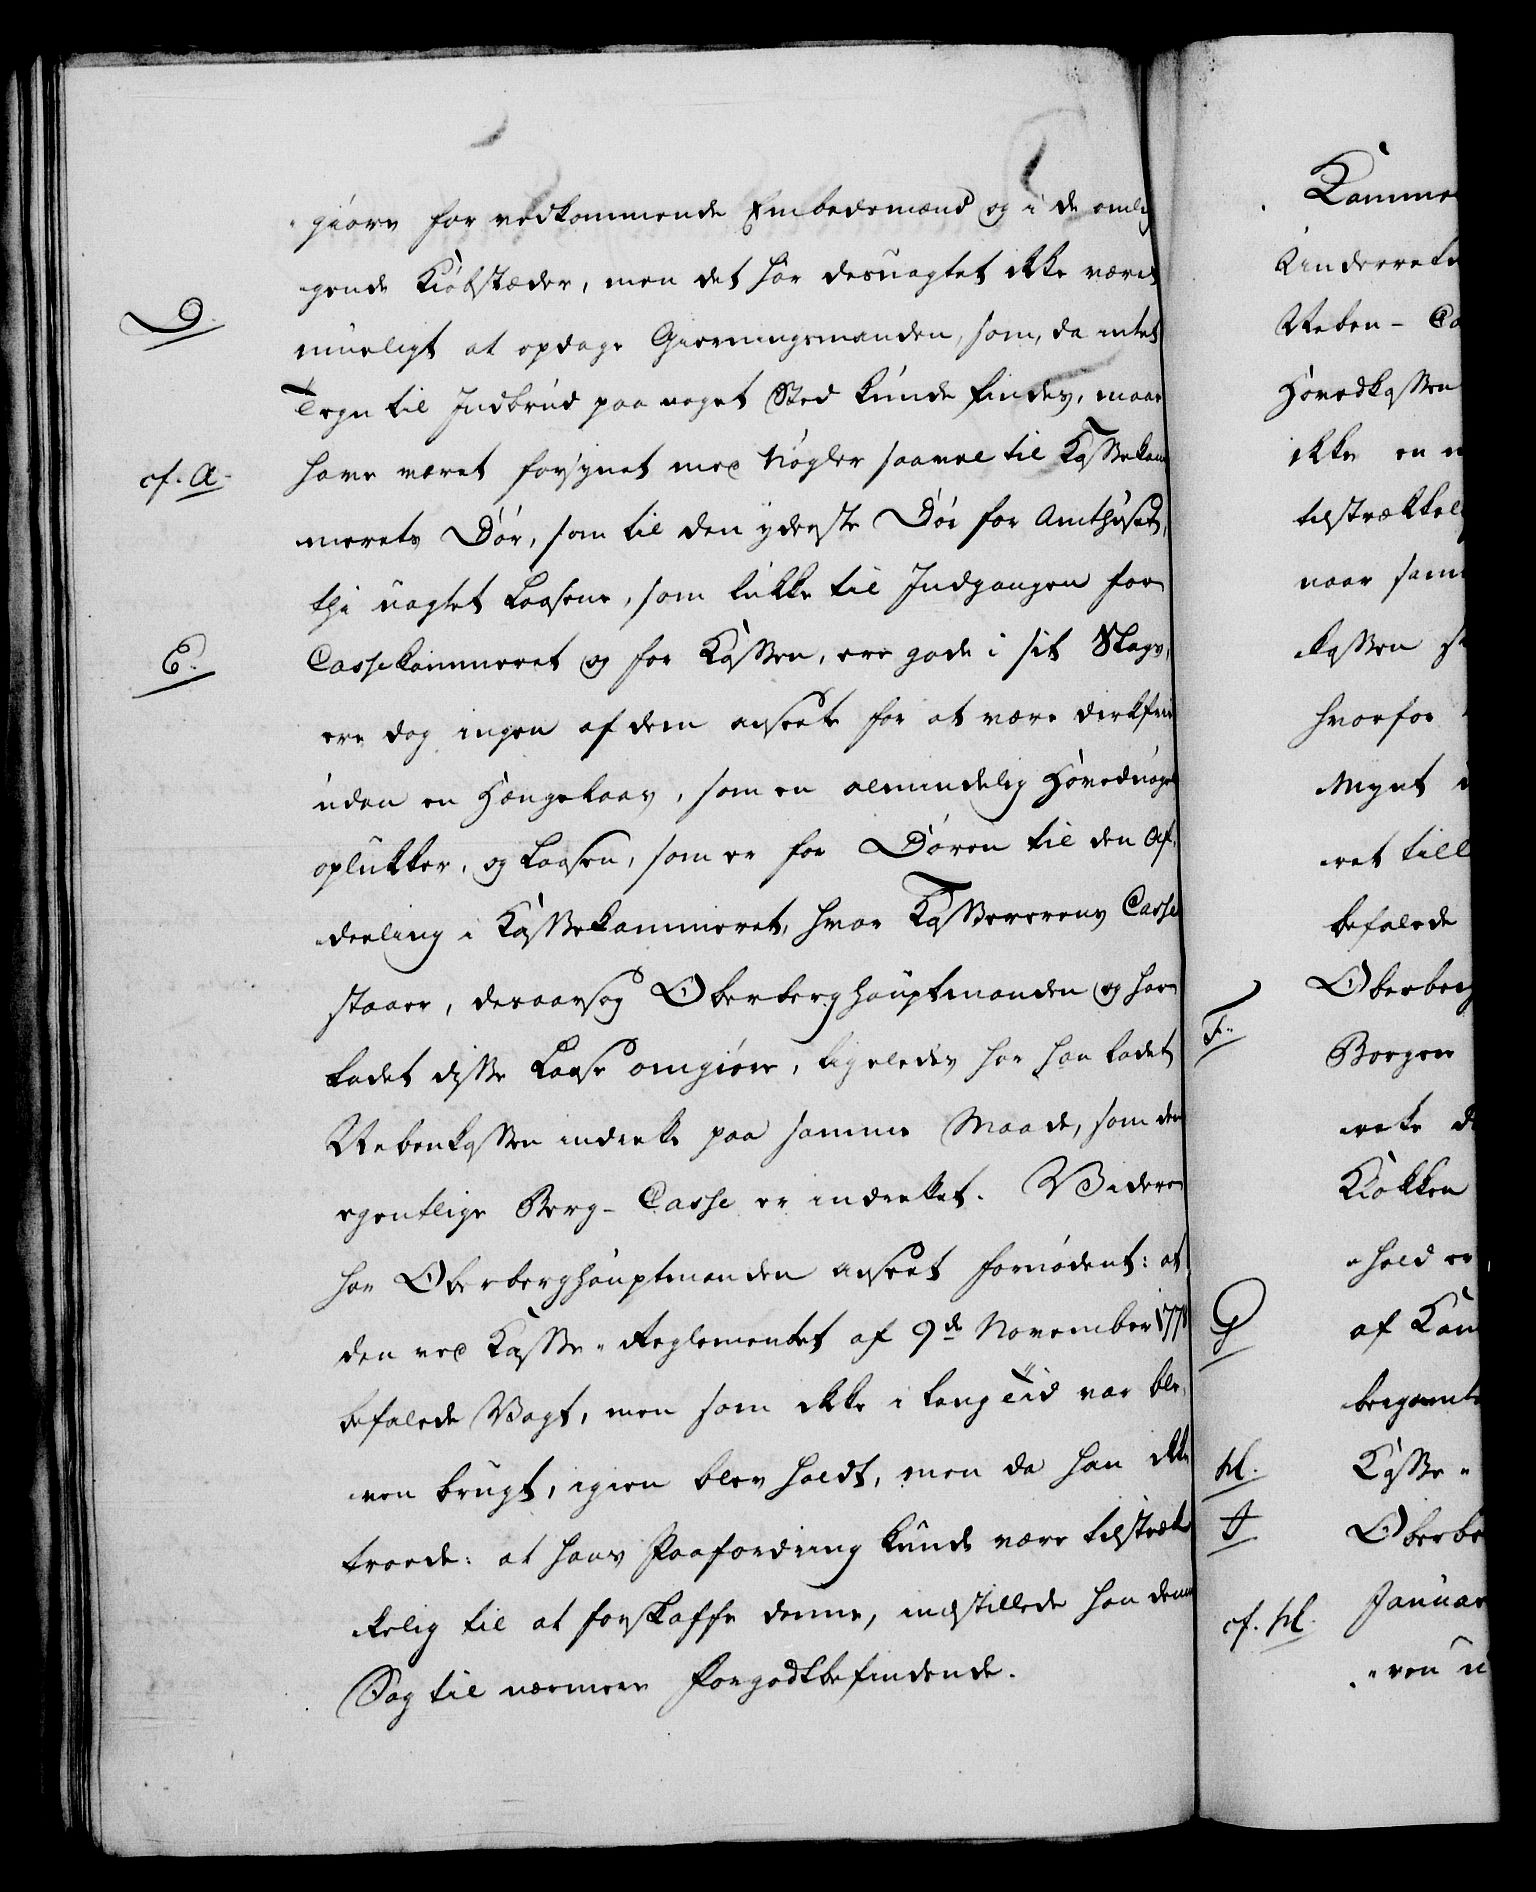 giøre for vedkommende Embedsmænd og i de omlig
gende Kiøbstæder, men det har desuagtet ikke væred
D.
mueligt at opdage Gierningsmanden, som, da intet
Tegn til Indbrud paa noget Sted kunde findes, maae
cf. A.
have været forsynet med Nøgler saavel til Kassekam
merets Dør, som til den yderste Dør for Amthuset,
thi uagtet Laasene, som lukke til Indgangen for
E.
Cassekammeret og for Kassen, ere gode i sit Slags,
ere dog ingen af dem anseete for at være dirkfrie
uden en Hængelaas, som en almindelig Hovednøgel
oplukker, og Laasen, som er for Døren til den Af,
deeling i Kassekammeret, hvor Kassererens Casse
staaer, desaarsag Oberberghauptmanden og har
ladet disse Laase omgiøre, ligeledes har han ladet
Rebenkassen indrette paa samme Maade, som den
egentlige Berg-Casse er indrettet. Videre
har Oberberghauptmanden anseet fornødent: at
den ved Kasse-Reglementet af 9de November 1771
befalede Vagt, men som ikke i lang Tid var ble,
ven brugt, igien blev holdt, men da han ikke
troede: at hans Paafordring kunde være tilstræk
kelig til at forskaffe denne, indstillede han denne
Sag til nærmere Forgodtbefindende.
Kamme
Underrette
Reben-Ca
Hovedkassen
ikke en
tilstrækkel
naar sam
kassen
hvorfor
Mynt
ret till
befalede
Oberberg
F.
Borgere
rette
Kiøkken
hold er
G
af Kam
bergamts
H.
Kasse-
I
Oberbe
Januar
cf. H.
ven